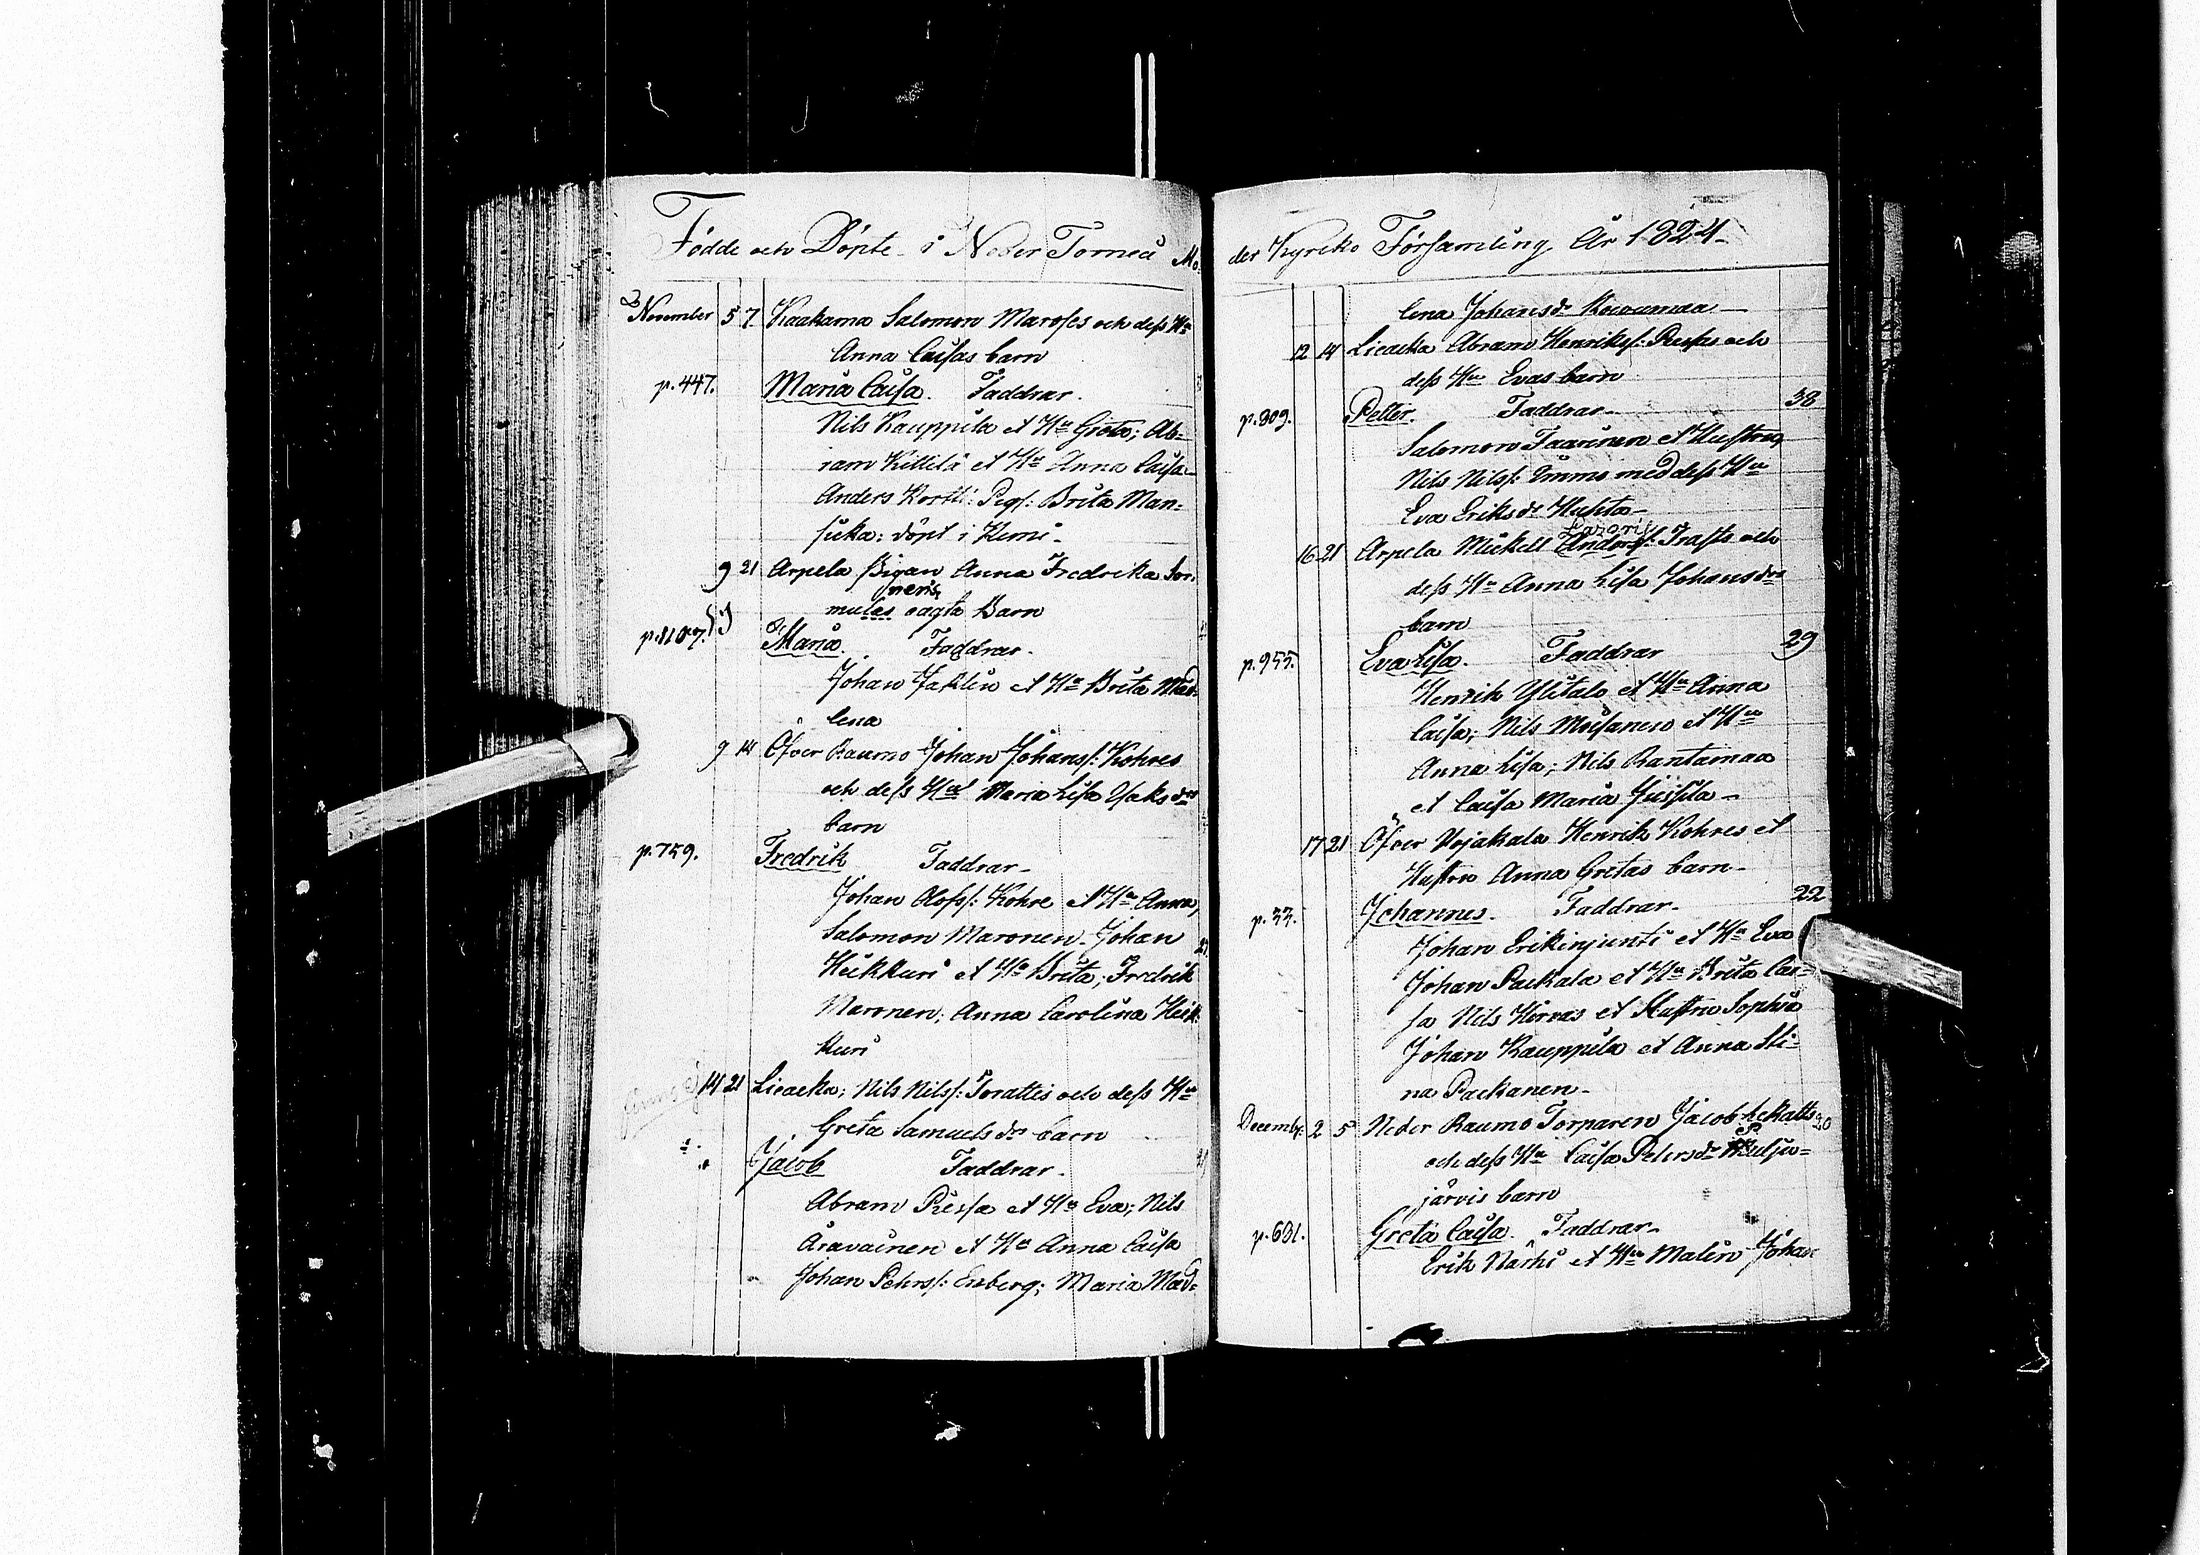 Födde och Döpte i Neder Torneå Mo.
November 5 7. Kaakama Salomon Maroses och dess Hu
Anna Caisas barn
p. 447. Maria Caisa. Faddrar.
Nils Kauppila et Hu Greta; Ab-
ram Kittilä et Hu Anna Caisa
Anders Pig: Brita Man-
sicka: döpt i Kemi.
9 21 Arpela Pigan Anna Fredrika
oägta Barn
Maria. Faddrar.
Johan et Hu Brita Mad-
lena
9 14 Öfver Raumo Johan Johanss: Kohres
och dess Hu Maria Lisa Isaks dr
barn
p. 759. Fredrik Faddrar
Johan Olofss: Kohre et Hu Anna,
Salomon Maronen. Johan
Heikkuri et Hu Brita; Fredrik
Maronen; Anna Carolina Heik-
kuri
14 21 Liacka; Nils Nilss: och dess Hu
Greta Samuels dr barn
Jacob Faddrar.
Abram Piessa et Hu Eva; Nils
Aravainen et Hu Anna Caisa
Johan Pehrss: Enberg; Maria Mad-
der Kyrcko Församling År 1824
lena Johans dr
12 14 Liacka Abram Henrikss: och
dess Hu Evas barn
p. 809. Petter. Faddrar 38
Salomon Taavinen et Hustru
Nils Nilss: Immo med dess Hu
Eva Eriks dr Huhta
Lazari
16 21 Arpela Mickell Anderss: och
dess Hu Anna Lisa Johans dr
barn
p. 955. Eva Lisa. Faddrar 29
Henrik Ylitalo et Hu Anna
Caisa; Nils Moisanen et Hu
Anna Lisa; Nils Rantamaa
et Caisa Maria
17 21 Öfver Vojakala Henrik Kohres et
Hustru Anna Gretas barn
p. 33. Johannes. Faddrar 22
Johan Erikinjunti et Hu Eva
Johan Packala et Hu Brita Cai-
sa Nils Hirvas et Hustru Sophia
Johan Kauppila et Anna Sti-
na Packanen
Decemb: 2 5 Neder Raumo Torparen Jacob 20
och dess Hu Caisa Peters dr
järvis barn
p. 631. Greta Caisa. Faddrar
Erik Narhi et Hu Malin Johan